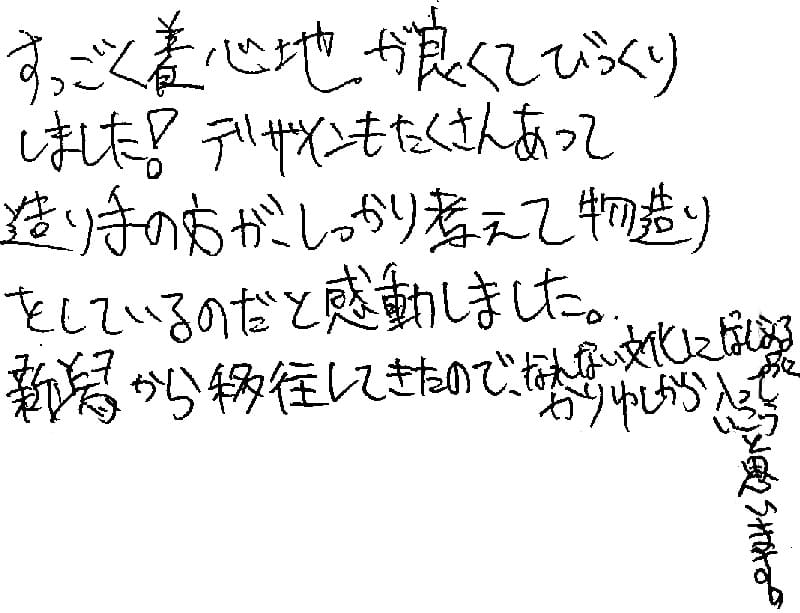 すっごく着心地が良くてびっくり
しました!デザインもたくさんあって
造り手の方が、しっかり考えて物造り
をしているのだと感動しました。
新潟から移住してきたので、なれない文化に
かりゆしから
と思います。